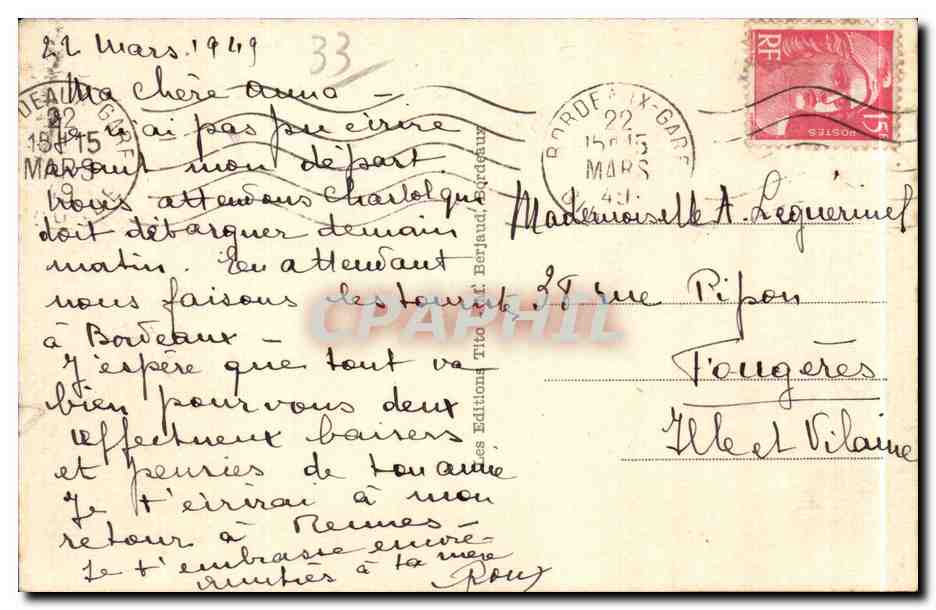 22 Mars 1949
33
Ma chère Anna -
Je n'ai pas pu écrire
avant mon départ
nous attendons Charlot qui
doit débarquer demain
matin. En attendant
nous faisons les touristes
à Bordeaux -
J'espère que tout va
bien pour vous deux
affectueux baisers
et pensées de ton amie
Je t'écrirai à mon
retour à Rennes -
Je t'embrasse encore -
amitiés à ta mère
BORDEAUX-GARE
22
15H15
MARS
RF
POSTES
15F
BORDEAUX-GARE
22
15H15
MARS
Les Editions Tito Berjaud, Bordeaux
Mademoiselle A. Léguérinel
38 rue Pipon
Fougères
Ille et Vilaine
CPAPHIL